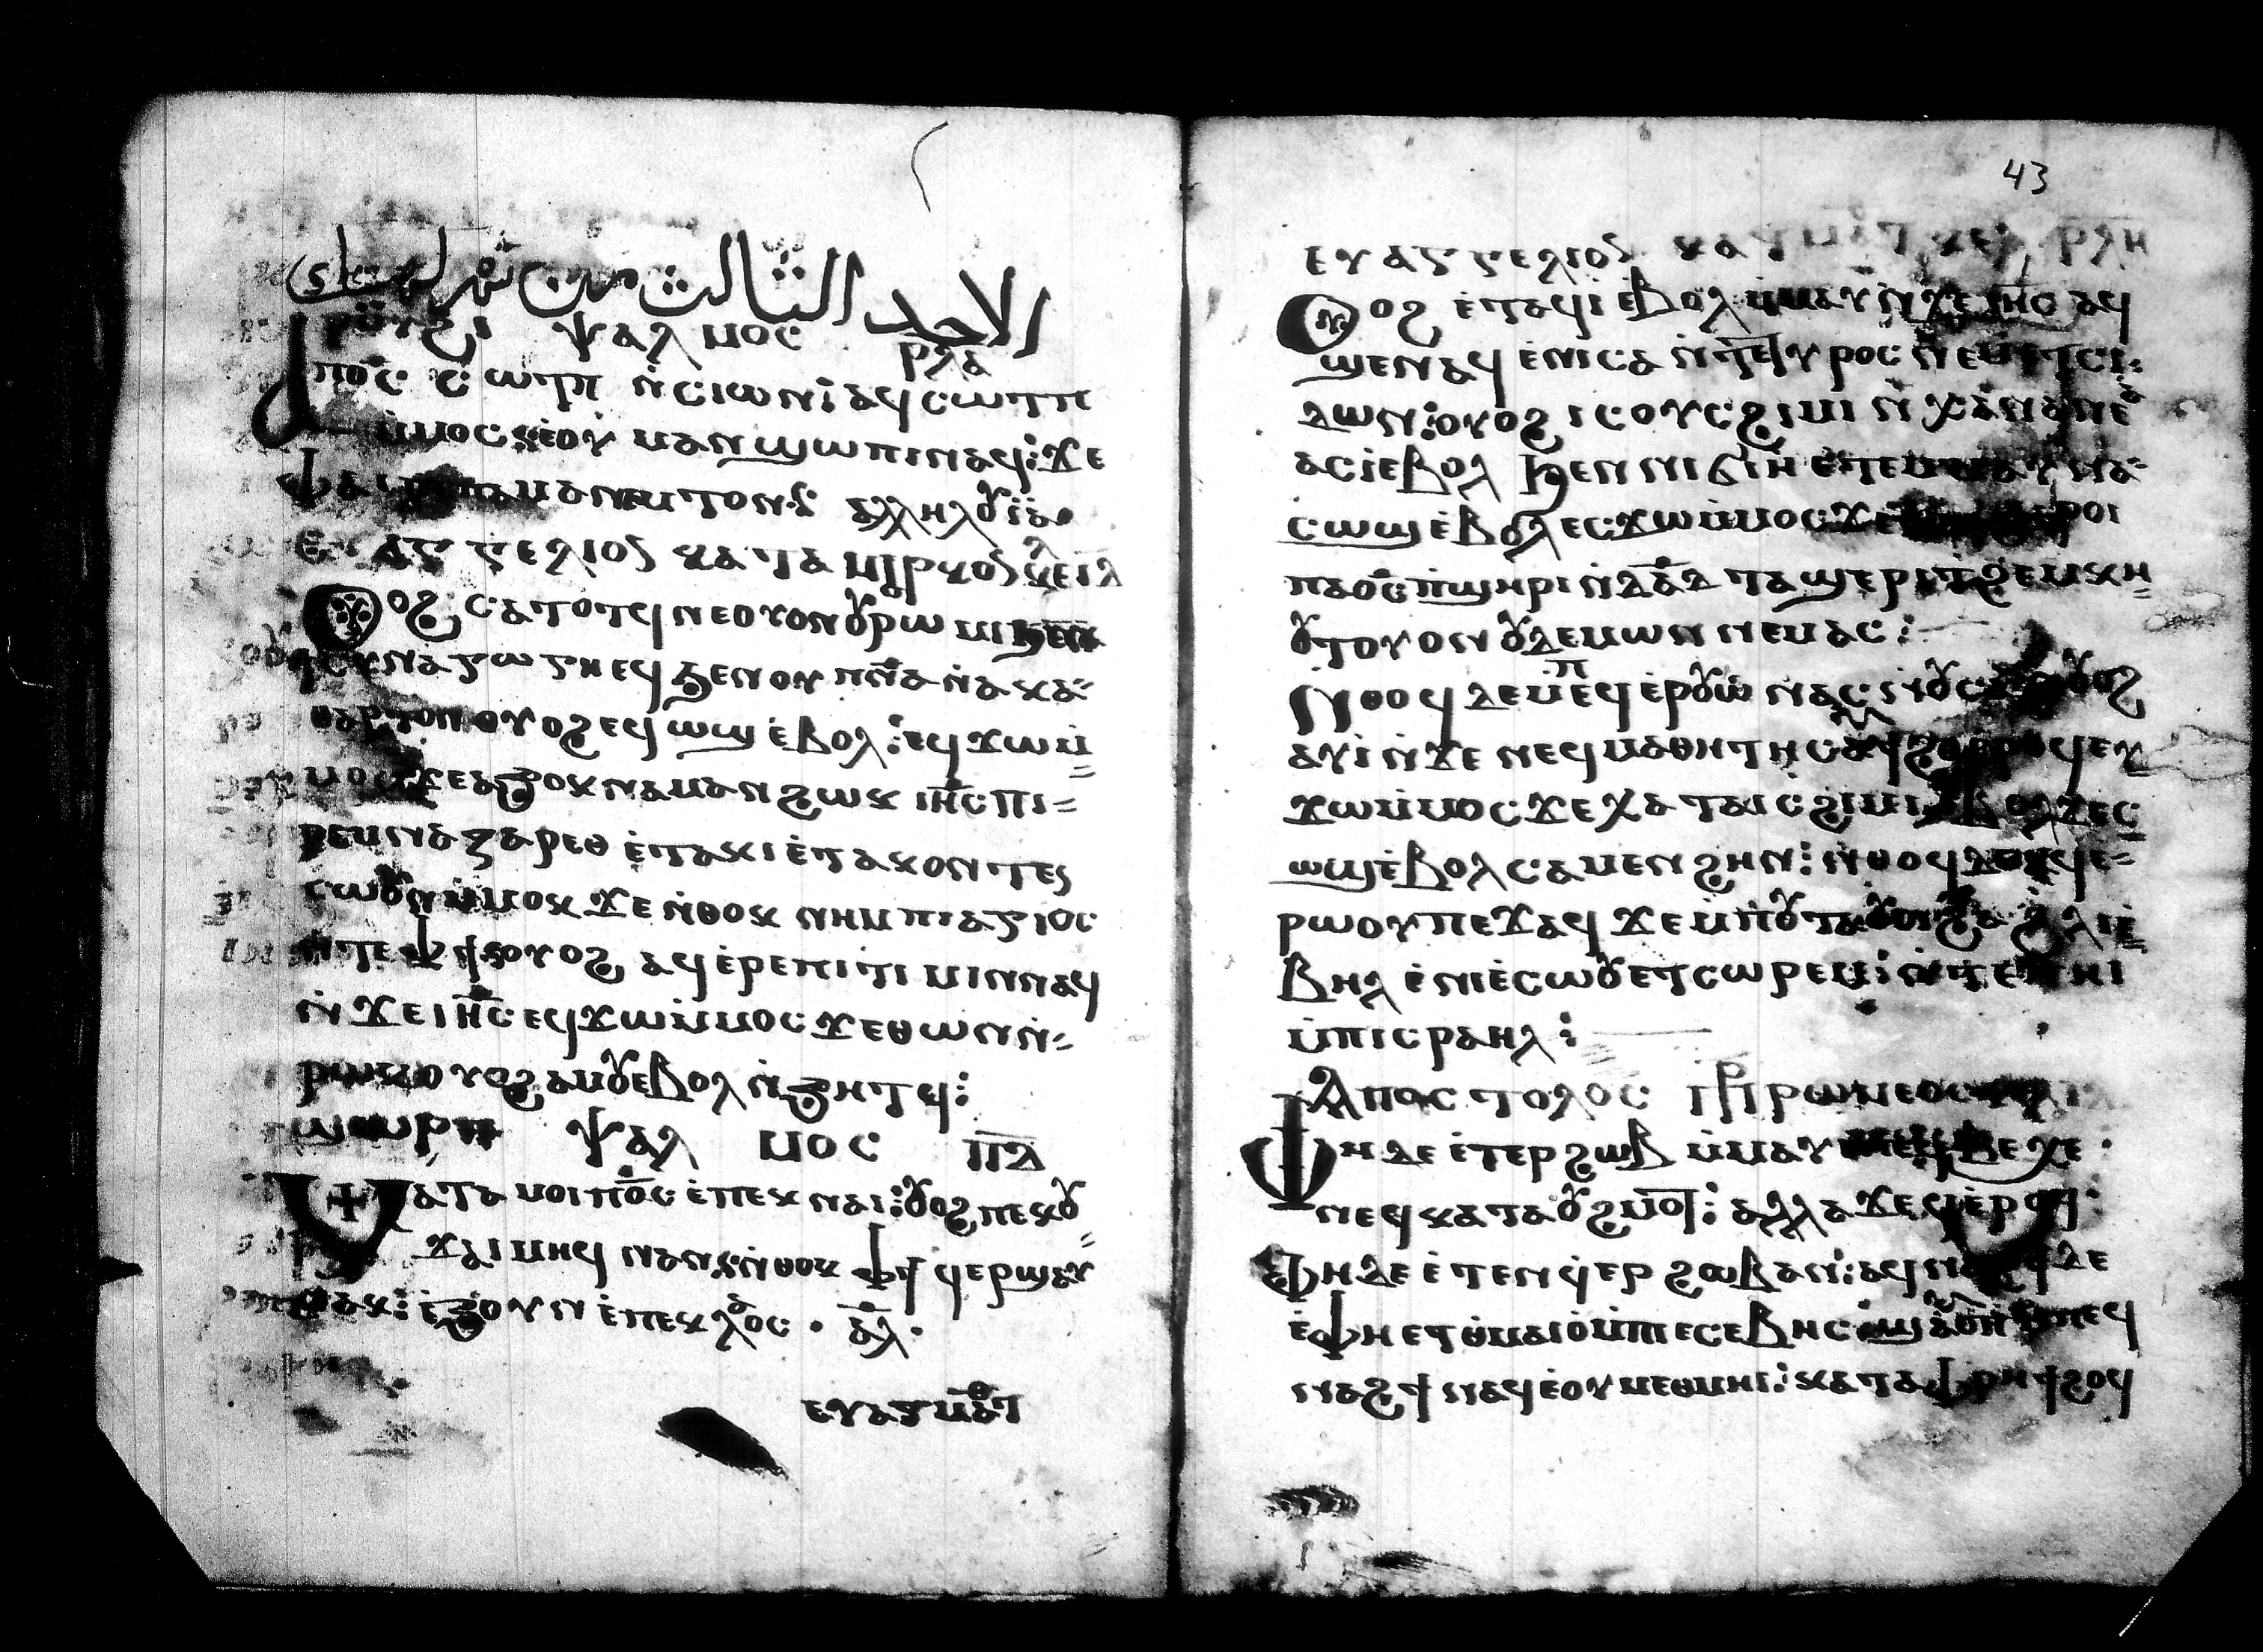 الاحد الثالث من شهر
ⲣⲟⲩϩⲓ ⲯⲁⲗⲙⲟⲥ ⲣⲗⲁ
ⲁⲡⲟ̅ⲥ̅ ⲥⲱⲧⲡ ⲛ̀ⲥⲓⲱⲛ: ⲁϥⲥⲱⲧⲡ
ⲙ̀ⲙⲟⲥ ⲉⲟⲩ ⲙⲁⲛϣⲱⲡⲓ ⲛⲁϥ: ϫⲉ
ⲫⲁⲓ ⲡⲉ ⲡⲁⲙⲁⲛⲙⲧⲟⲛ ⲁⲗⲗⲏⲗⲟⲩⲓ̈ⲁ
ⲉⲩⲁⲅⲅⲉⲗⲓⲟⲛ ⲕⲁⲧⲁ ⲙⲁⲣⲕⲟⲛ ⲕⲉ ⲓ̅ⲁ̅
ⲟⲩⲟϩ ⲥⲁⲧⲟⲧϥ ⲛⲉⲟⲩⲟⲛ ⲟⲩⲣⲱⲙⲓ ϧⲉⲛ
ⲥⲩⲛⲁⲅⲱⲅⲏ ⲉϥϧⲉⲛ ⲟⲩ ⲡⲛ̅ⲁ̅ ⲛ̀ⲁⲕⲁ
ⲑⲁⲣⲧⲟⲛ ⲟⲩⲟϩ ⲉϥⲱϣ ⲉ̀ⲃⲟⲗ: ⲉϥϫⲱⲙ̀
ⲙⲟⲥ ϫⲉ ⲁϧⲟⲕ ⲛⲁⲙⲁⲛ ϩⲱⲕ ⲓⲏ̅ⲥ̅ ⲡⲓ
ⲣⲉⲙⲛⲁⲍⲁⲣⲉⲑ ⲉ̀ⲧⲁⲕⲓ ⲉ̀ⲧⲁⲕⲟⲛ ⲧⲉⲛ
ⲥⲱⲟⲩⲛ ⲙ̀ⲙⲟⲕ ϫⲉ ⲛ̀ⲑⲟⲕ ⲛⲓⲙ ⲡⲓⲁⲅⲓⲟⲥ
ⲛ̀ⲧⲉ ⲫϯ ⲟⲩⲟϩ ⲁϥⲉ̀ⲣⲉⲡⲓⲧⲓⲙⲓⲛ ⲛⲁϥ
ⲛ̀ϫⲉ ⲓⲏ̅ⲥ̅ ⲉϥϫⲱⲙ̀ⲙⲟⲥ ϫⲉ ⲑⲱⲙ ⲛ̀
ⲣⲱⲕ ⲟⲩⲟϩ ⲁⲙⲟⲩ ⲉⲃⲟⲗ ⲛ̀ϧⲏⲧϥ:
ϣⲱⲣⲡ ⲯⲁⲗⲙⲟⲥ ⲡ̅ⲇ̅
ⲙⲁⲧⲁⲙⲟⲓ ⲡⲟ̅ⲥ̅ ⲉ̀ⲡⲉⲕⲛⲁⲓ: ⲟⲩⲟϩ ⲡⲉⲕⲟⲩ
ϫⲁⲓ ⲙⲏⲓϥ ⲛⲁⲛ: ⲛ̀ⲑⲟⲕ ⲫϯ ϥⲉⲣϣⲁⲩ
ⲉ̀ϧⲟⲩⲛ ⲉ̀ⲡⲉⲕⲗⲁⲟⲥ · ⲁ̅ⲗ̅ ·
ⲉⲩⲁⲅ ⲙⲁⲧ
43
ⲉⲩⲁⲅⲅⲉⲗⲓⲟⲛ ⲕⲁⲧ ⲙⲁⲧ ⲕⲉ ⲣⲗⲏ
ⲟⲩⲟϩ ⲉ̀ⲧⲁϥⲓ̀ ⲉ̀ⲃⲟⲗ ⲙ̀ⲙⲁⲩ ⲛ̀ϫⲉ ⲓⲏ̅ⲥ̅ ⲁϥ
ϣⲉⲛⲁϥ ⲉ̀ⲛⲓⲥⲁ ⲛ̀ⲧⲉ ⲧⲩⲣⲟⲥ ⲛⲉⲙ ⲧⲥⲓ
ⲇⲱⲛ: ⲟⲩⲟϩ ⲓⲥ ⲟⲩⲥϩⲓⲙⲓ ⲛ̀ⲭⲁⲛⲁⲛⲉⲁ
ⲁⲥⲓ̀ ⲉⲃⲟⲗ ϧⲉⲛ ⲛⲓϭⲓⲏ ⲉ̀ⲧⲉⲙⲙⲁⲩ ⲛⲁ
ⲥⲱϣ ⲉ̀ⲃⲟⲗ ⲉⲥϫⲱⲙ̀ⲙⲟⲥ ϫⲉ ⲣⲟⲓ
ⲡⲁⲟ̅ⲥ̅ ⲡ̀ϣⲏⲣⲓ ⲛ̀ⲇⲁ̅ⲇ̅ ⲧⲁϣⲉⲣⲓ ⲧ̀ϩⲉⲙⲕⲏ
ⲟⲩⲧ ⲟⲩⲟⲛ ⲟⲩⲇⲉⲙⲱⲛ ⲛⲉⲙⲁⲥ:
ⲛ̀ⲑⲟϥ ⲇⲉ ⲙ̀ⲡⲉϥ ⲉ̀ⲣⲟⲩⲱ ⲛⲁⲥ ⲛ̀ⲟⲩⲥⲁϫⲓ ⲟⲩⲟϩ
ⲁⲩⲓ̀ ⲛ̀ϫⲉ ⲛⲉϥⲙⲁⲑⲏⲧⲏⲥ ⲁⲩϯϩⲟ ⲉⲣⲟϥ ⲉⲩ
ϫⲱⲙ̀ⲙⲟⲥ ϫⲉ ⲭⲁ ⲧⲁⲓⲥϩⲓⲙⲓ ⲉⲃⲟⲗ ϫⲉ ⲥ
ⲱϣ ⲉ̀ⲃⲟⲗ ⲥⲁⲙⲉⲛϩⲏⲛ: ⲛ̀ⲑⲟϥ ⲇⲉ ⲁϥⲉ
ⲣⲱⲟⲩ ⲡⲉϫⲁϥ ϫⲉ ⲙ̀ⲡⲟⲩⲧⲁⲟⲩⲟⲓ ϩⲁ ϩⲗⲓ ⲉ̀
ⲃⲏⲗ ⲉ̀ⲛⲓⲉ̀ⲥⲱⲟⲩ ⲉⲧⲥⲱⲣⲉⲙ ⲛ̀ⲧⲉ ⲡⲏⲓ
ⲙ̀ⲡⲓⲥⲣⲁⲏⲗ:
ⲁⲡⲟⲥⲧⲟⲗⲟⲥ ⲡⲣⲟⲥ ⲣⲱⲙⲉⲟⲥ
ⲫⲏ ⲇⲉ ⲉ̀ⲧⲉⲣϩⲱⲃ ⲙ̀ⲙⲁⲩ ⲃⲉⲭⲉ
ⲛⲉϥ ⲕⲁⲧⲁ ⲟⲩϩⲙⲟⲧ: ⲁⲗⲗⲁ ϫⲉ ϥⲉ̀ⲣⲟϥ:
ⲫⲏ ⲇⲉ ⲉ̀ⲧⲉⲛϥⲉⲣϩⲱⲃ ⲁⲛ: ⲁϥⲛⲁϩϯ ⲇⲉ
ⲉ̀ⲫⲏ ⲉⲧⲑⲙⲁⲓⲟ ⲙ̀ⲡⲓⲉⲥⲉⲃⲏⲥ ϣⲁⲩⲉⲡ ⲡⲉϥ
ⲛⲁϩϯ ⲛⲁϥ ⲉⲟⲩⲙⲉⲑⲙⲏⲓ: ⲕⲁⲧⲁ ⲫⲣⲏϯ ϩⲟϥ